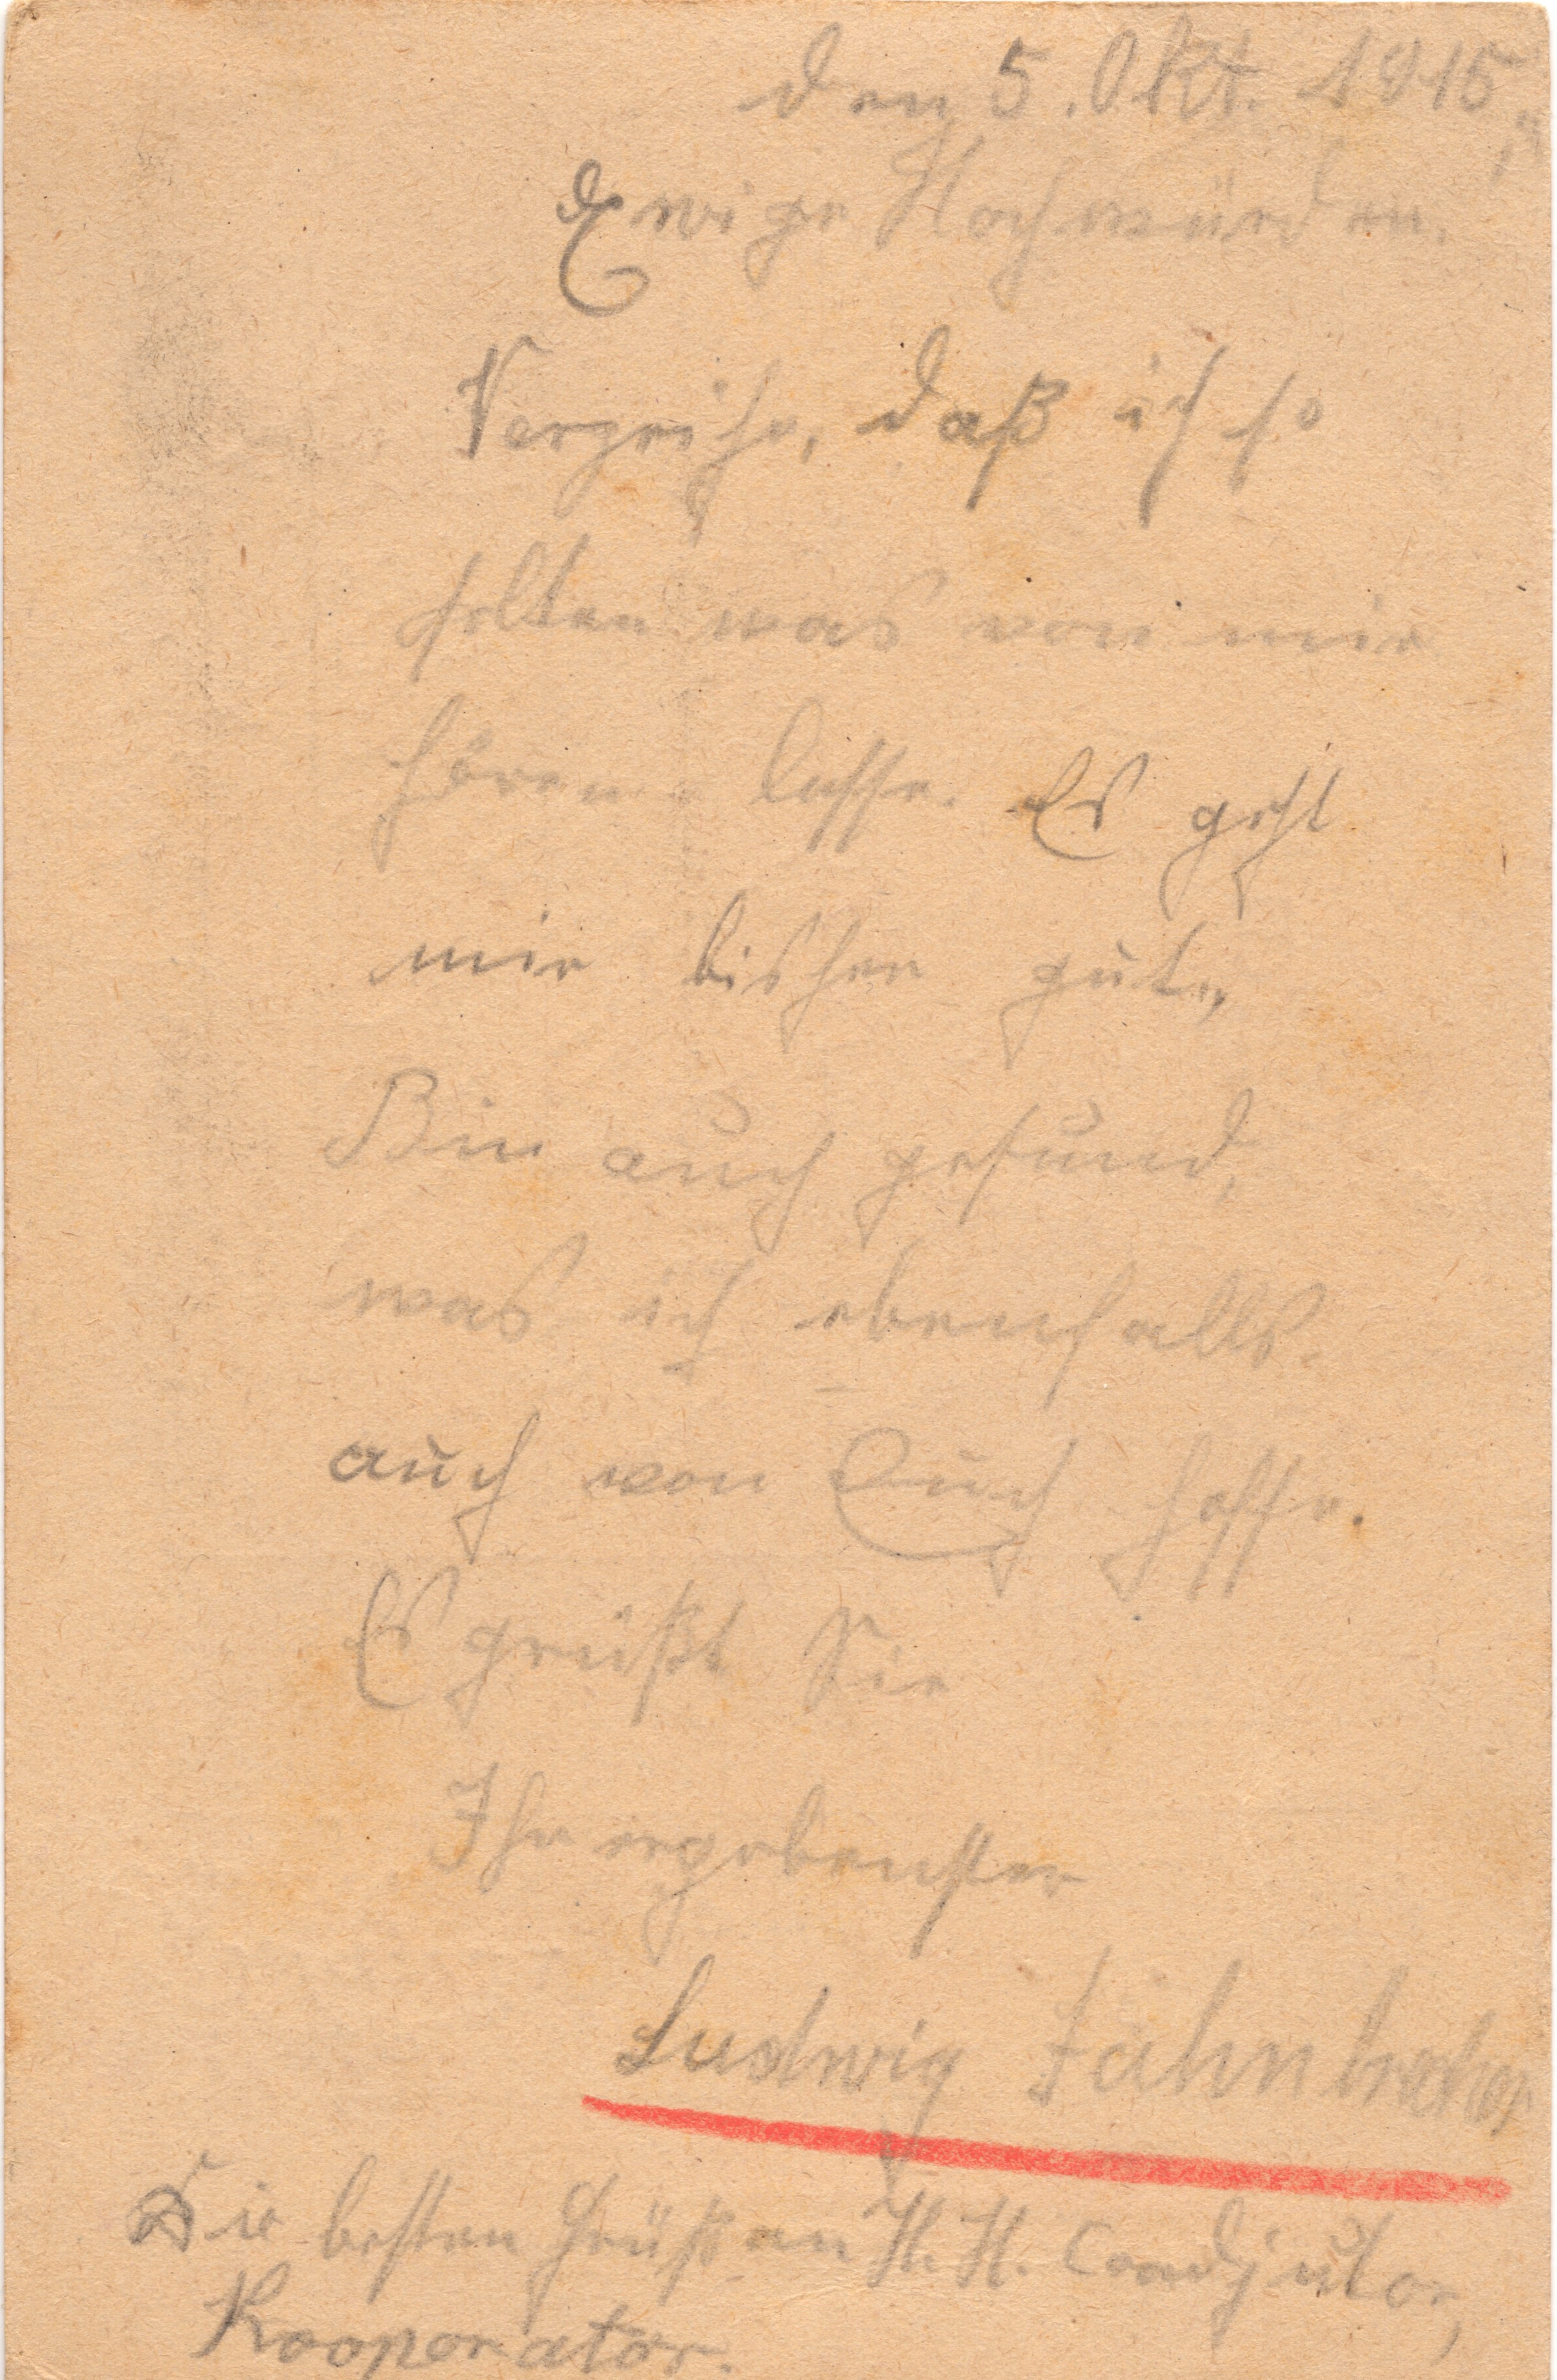 den 5. Okt. 1915,
Ewige Hochwürden.
Verzeihe, daß ich so
selten was von mir
hören lasse. Es geht
mir bisher gut,
Bin auch gesund,
was ich ebenfalls.
auch von Euch hoffe.
Es grüßt Sie
Ihr ergebenster
Ludwig
Die besten Grüße an H. H. Coadjutor,
Kooperator.